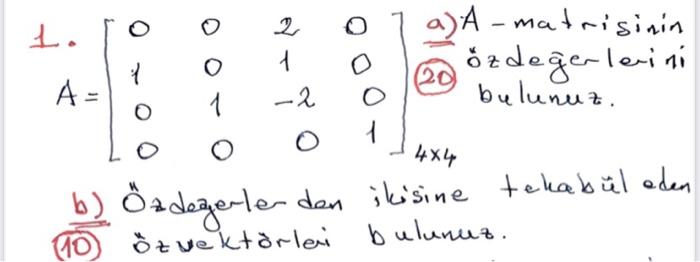 1. A = [ 0 0 2 0
1 0 1 0
0 1 -2 0
0 0 0 1 ] 4x4
a) A - matrisinin
20 özdeğerlerini
bulunuz.
b) Özdeğerler den ikisine tekabül eden
10 özvektörleri bulunuz.